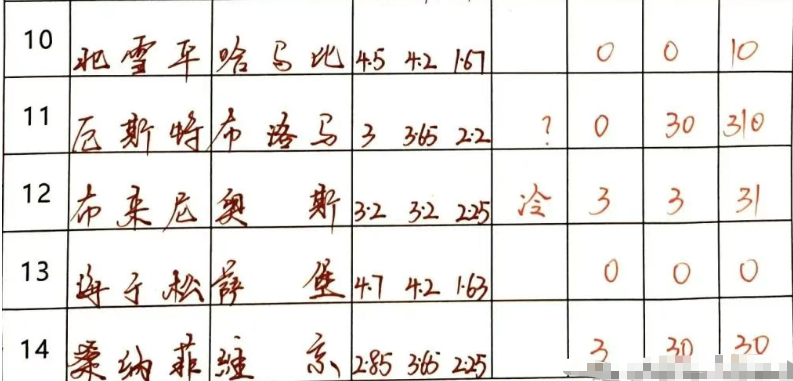 10 北雪平 哈马比 4.5 4.2 1.67 0 0 10
11 厄斯特 布洛马 3 3.65 2.2 ? 0 30 310
12 布来尼 奥斯 3.2 3.2 2.25 冷 3 3 31
13 海于松 萨堡 4.7 4.2 1.63 0 0 0
14 桑纳菲 维京 2.85 3.65 2.25 3 30 30